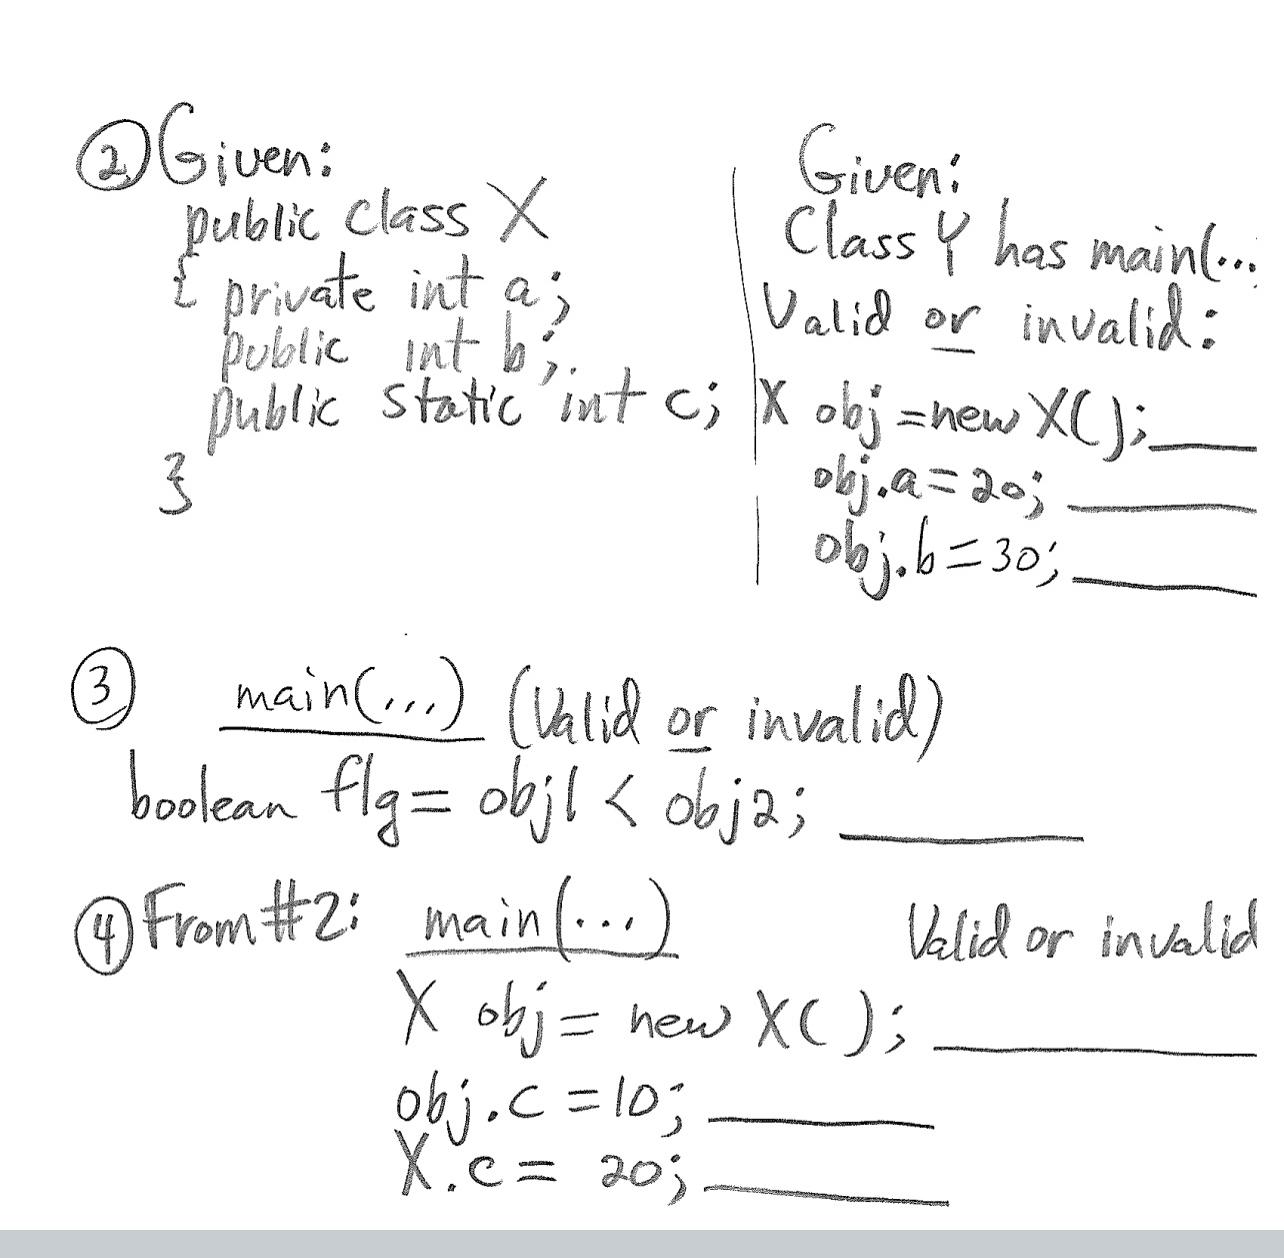 ② Given:
public class X
{ private int a;
public int b;
public static int c;
}
Given:
Class Y has main(...
Valid or invalid:
X obj = new X(); ____
obj.a = 20; ____
obj.b = 30; ____
③ main(...) (Valid or invalid)
boolean flg = obj1 < obj2; ____
④ From #2: main(...) Valid or invalid
X obj = new X(); ____
obj.c = 10; ____
X.c = 20; ____